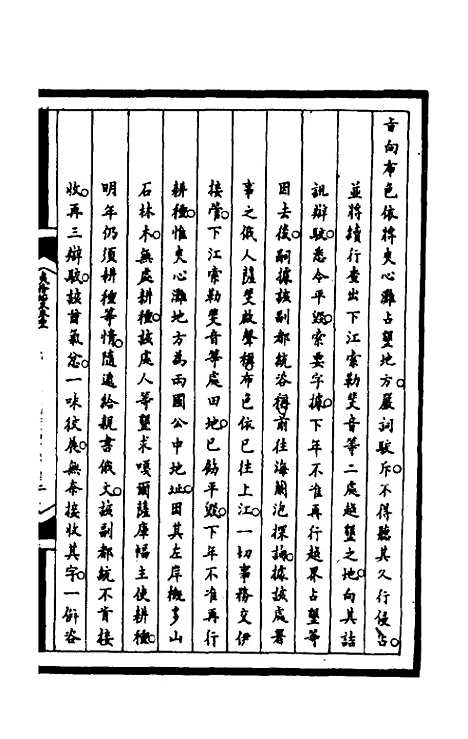 古向布色依將夾心灘占墾地方嚴詞駮斥不得聽其久行侵占
並將續行查出下江索勒斐音等二處越墾之地向其詰
訊辯駮悉令平毀索要字據下年不准再行越界占墾等
因去後嗣據該副都統咨稱前往海蘭泡探詢據該處署
事之俄人薩斐啟聲稱布色依已往上江一切事務交伊
接管下江索勒斐音等處田地已飭平毀下年不准再行
耕種惟夾心灘地方為兩國公中地址因其左岸概多山
石林木無處耕種該處人等墾求嗄爾薩庫幅主使耕種
明年仍須耕種等情隨遞給親書俄文該副都統不肯接
收再三辯駮該酋氣忿一味狡展無奈接收其字一併咨